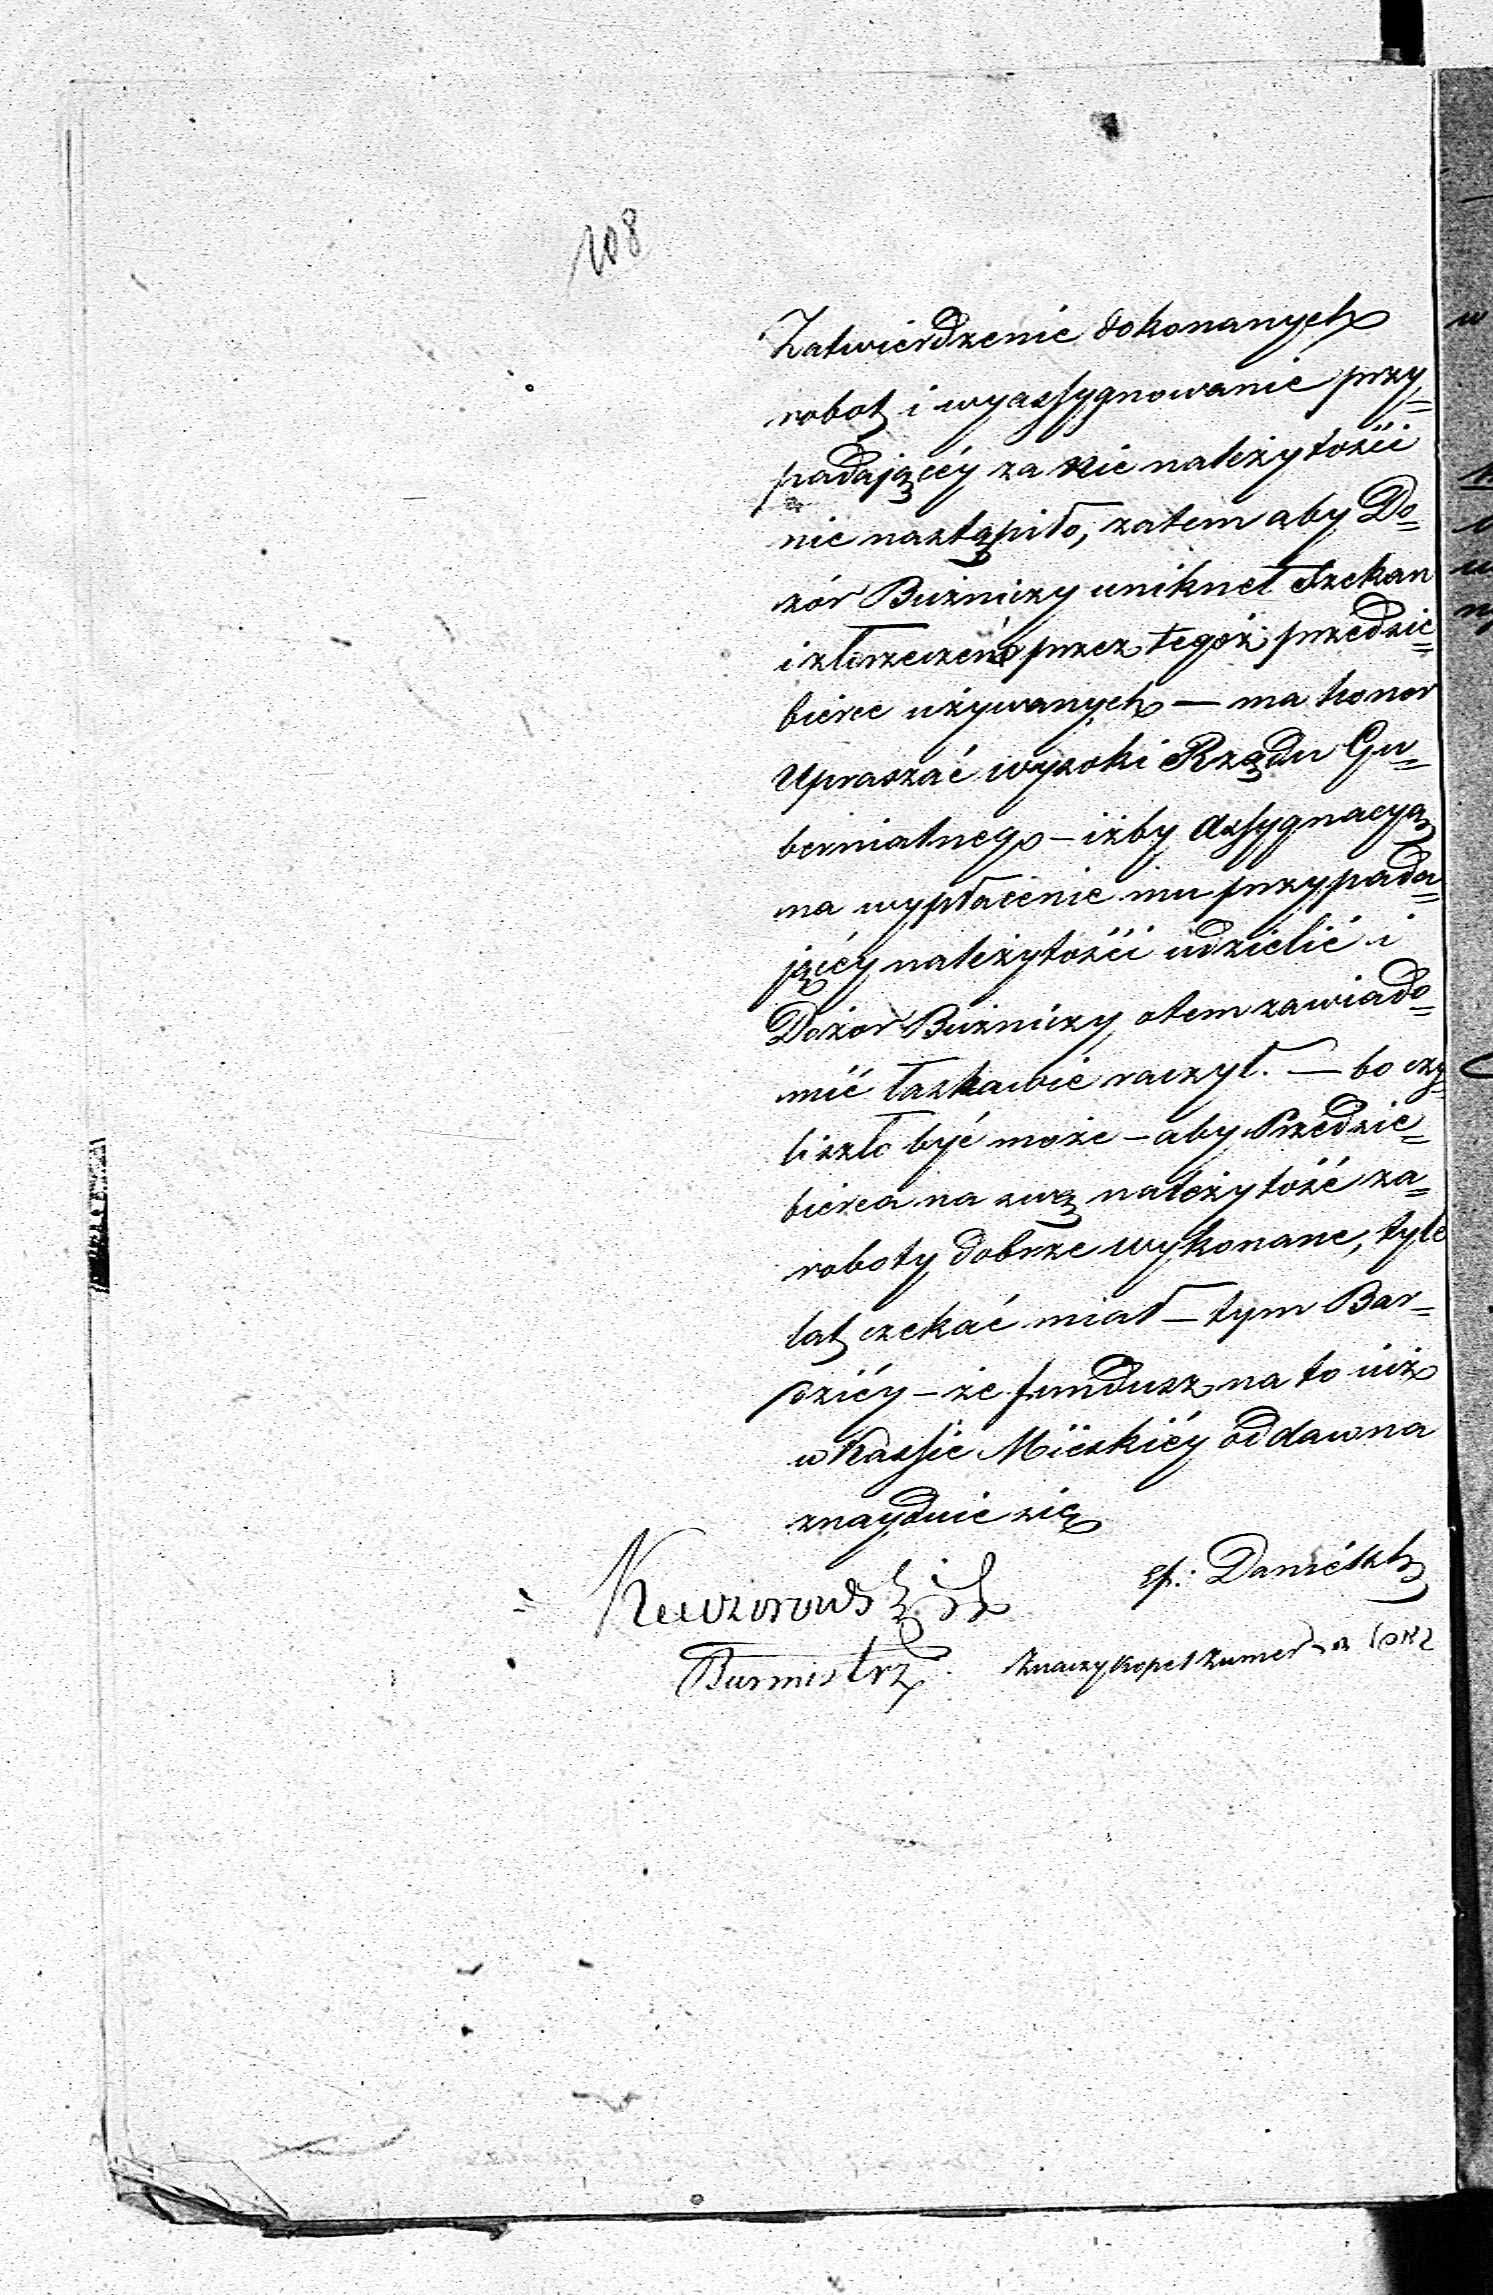 108
Zatwierdzenie dokonanych
robot i wyassygnowanie przy=
padającéy za nie należytości
nie nastąpiło, zatem aby Do=
zór Bużniczy uniknęł szekan
i złorzeczeń przez tegoż przedsie=
bierce używanych — ma honor
Upraszać wysoki Rządu Gu=
bernialnego — iżby Assygnacyą
na wypłacenie mu przypada=
jącéy należytości udzielić i
Dozor Bużniczy otem zawiado=
mić łaskawie raczył. — bo czy=
li szło być może — aby Przedsie=
bierca na swą należytość za=
roboty dobrze wykonane, tyle
lat czekać miał — tym Bar=
dziéy — że fundusz na to iuż
w Kassie Mieyskiéy oddawna
znayduie się
Burmistrz
Znaczy Kopel